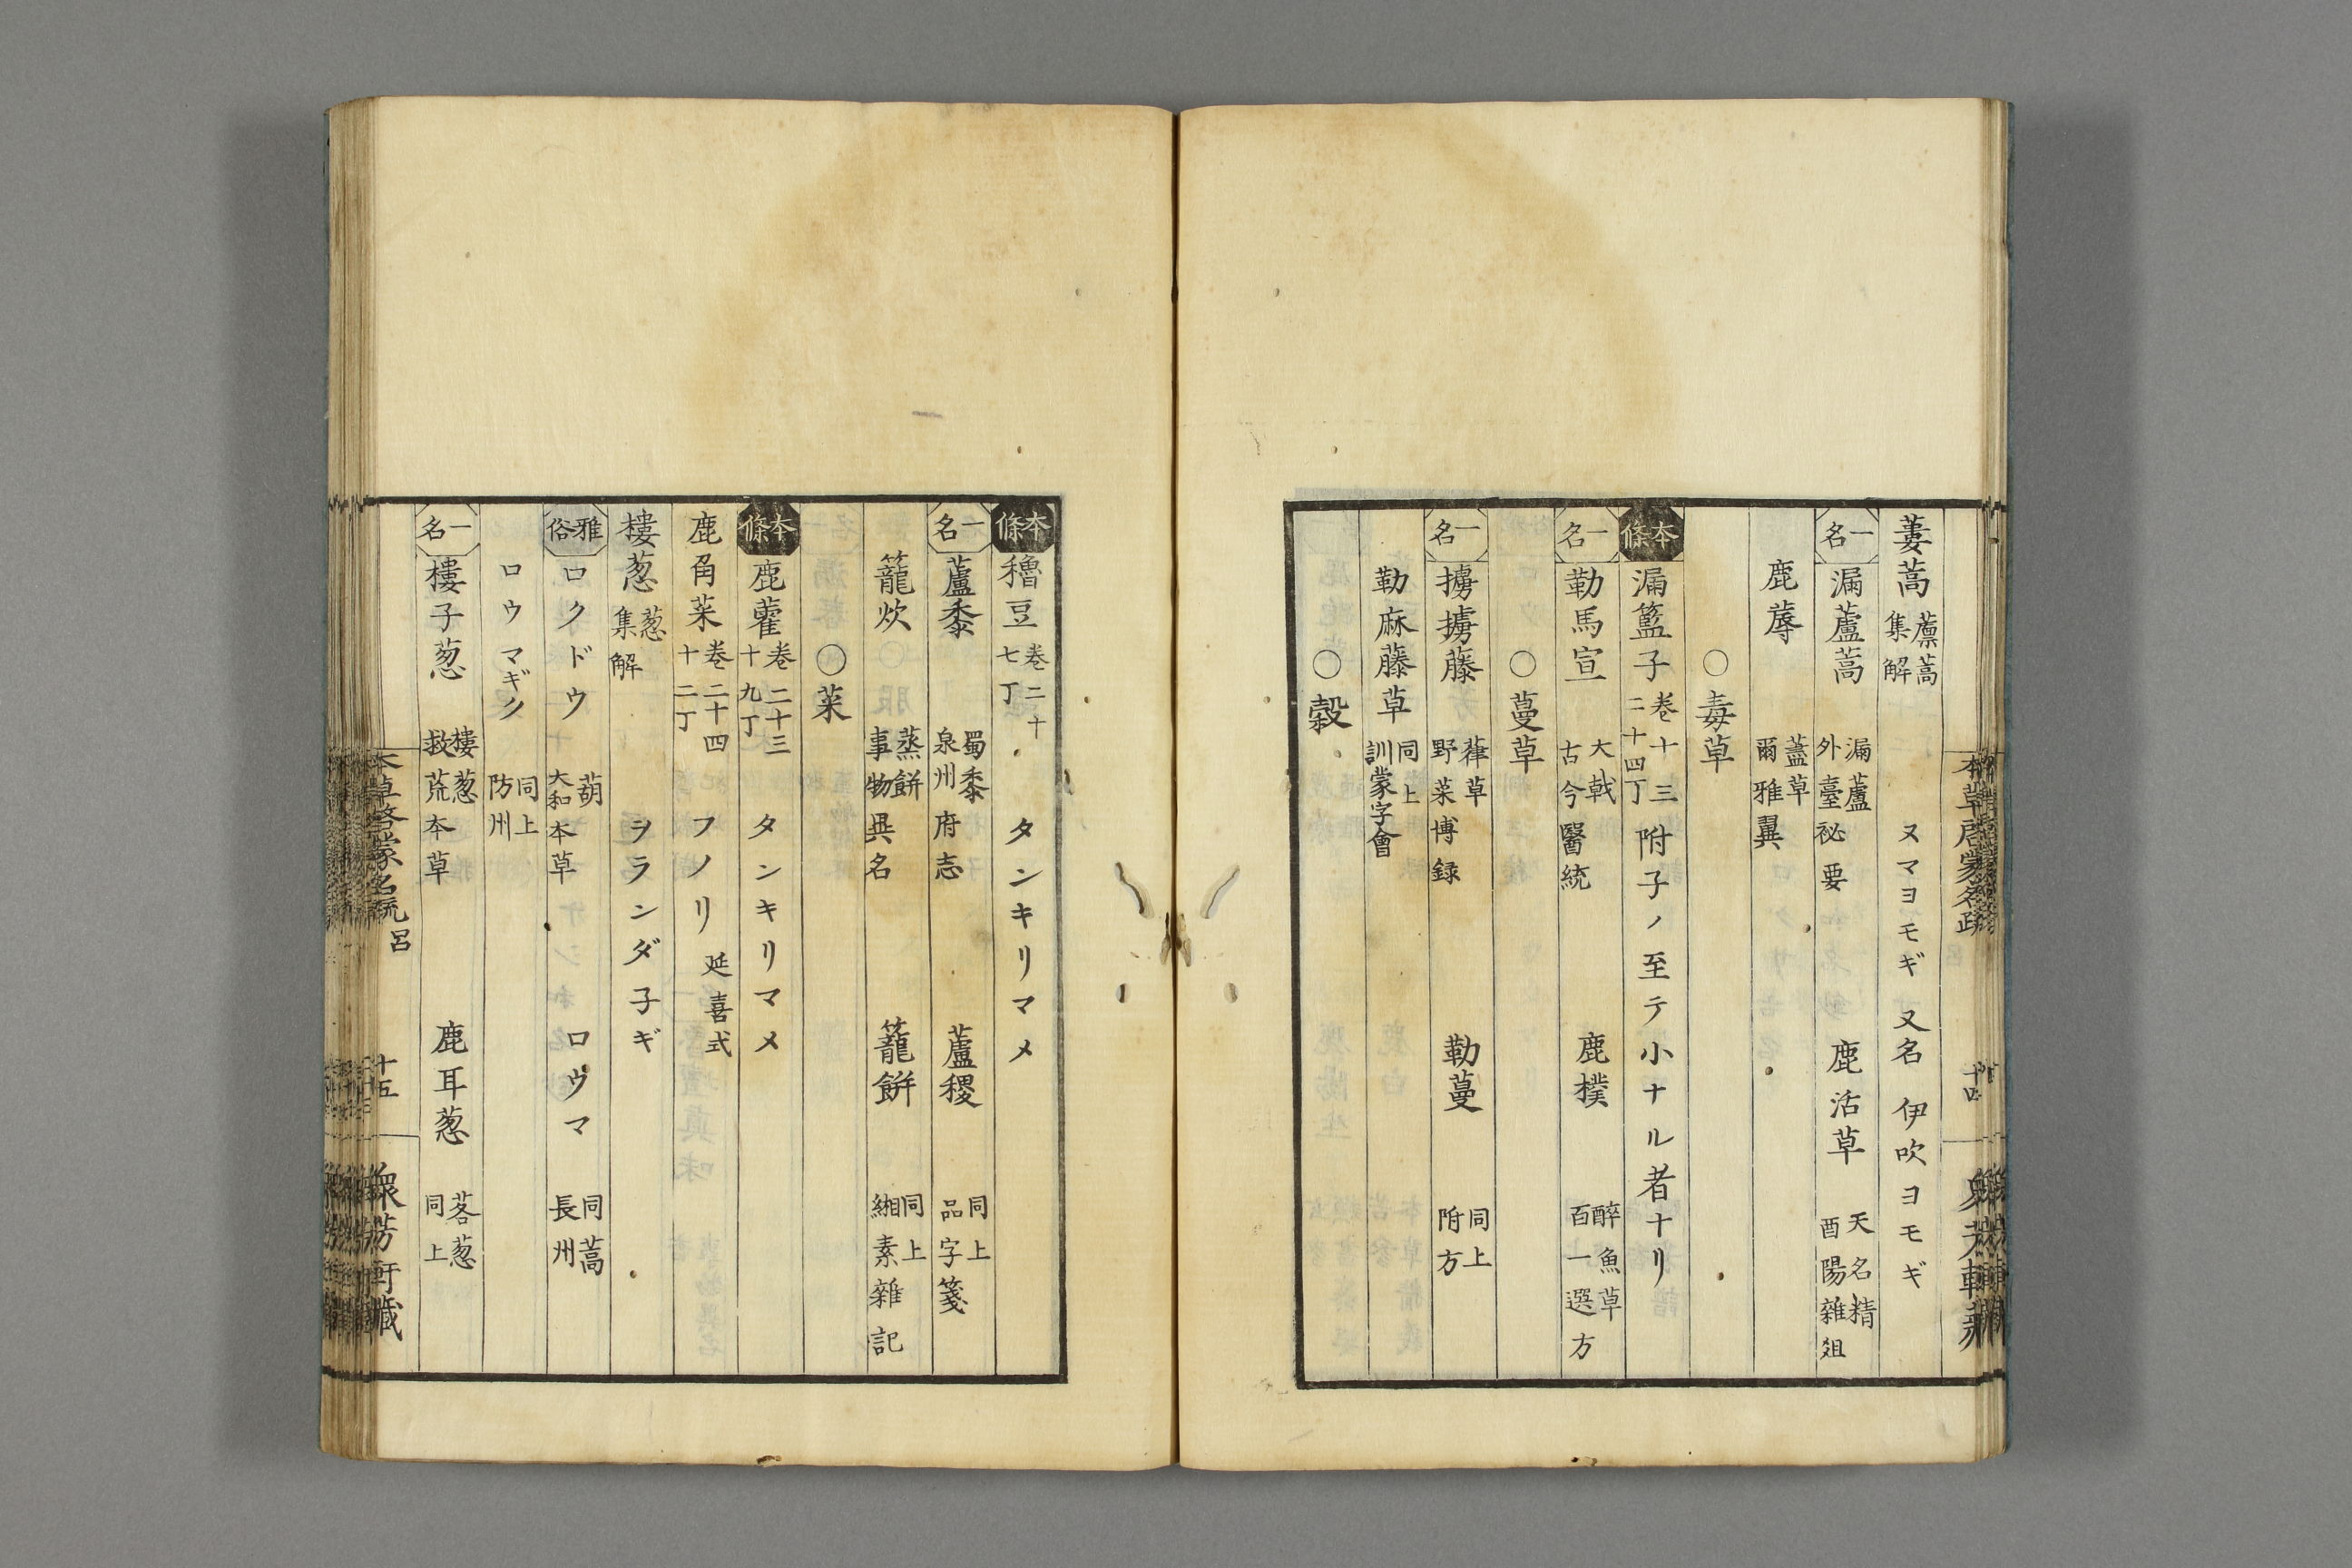 蔞蒿 藘蒿集解 ヌマヨモギ 又名 伊吹ヨモギ
一名 漏蘆蒿 漏蘆外臺祕要 鹿活草 天名精酉陽雜爼
鹿蓐 藎草爾雅翼
○毒草
本條 漏籃子 巻十三二十四丁 附子ノ至テ小ナル者ナリ
一名 勒馬宣 大戟古今醫統 鹿樸 醉魚草百一選方
○蔓草
一名 擄擄藤 葎草野菜博録 勒蔓 同上附方
勒麻藤草 同上訓蒙字會
○穀
本條 穭豆 巻二十七丁 タンキリマメ
一名 蘆黍 蜀黍泉州府志 蘆稷 同上品字箋
籠炊 蒸餅事物異名 籠餅 同上緗素雜記
○菜
本條 鹿藿 巻二十三十九丁 タンキリマメ
鹿角菜 巻二十四十二丁 フノリ 延喜式
樓葱 葱集解 ヲランダ子ギ
雅俗 ロクドウ 葫大和本草 ロウマ 同蒿長州
ロウマギノ 同上防州
一名 樓子葱 樓葱救荒本草 鹿耳葱 茖葱同上
本草啓蒙名疏 呂
十五
衆芳軒藏